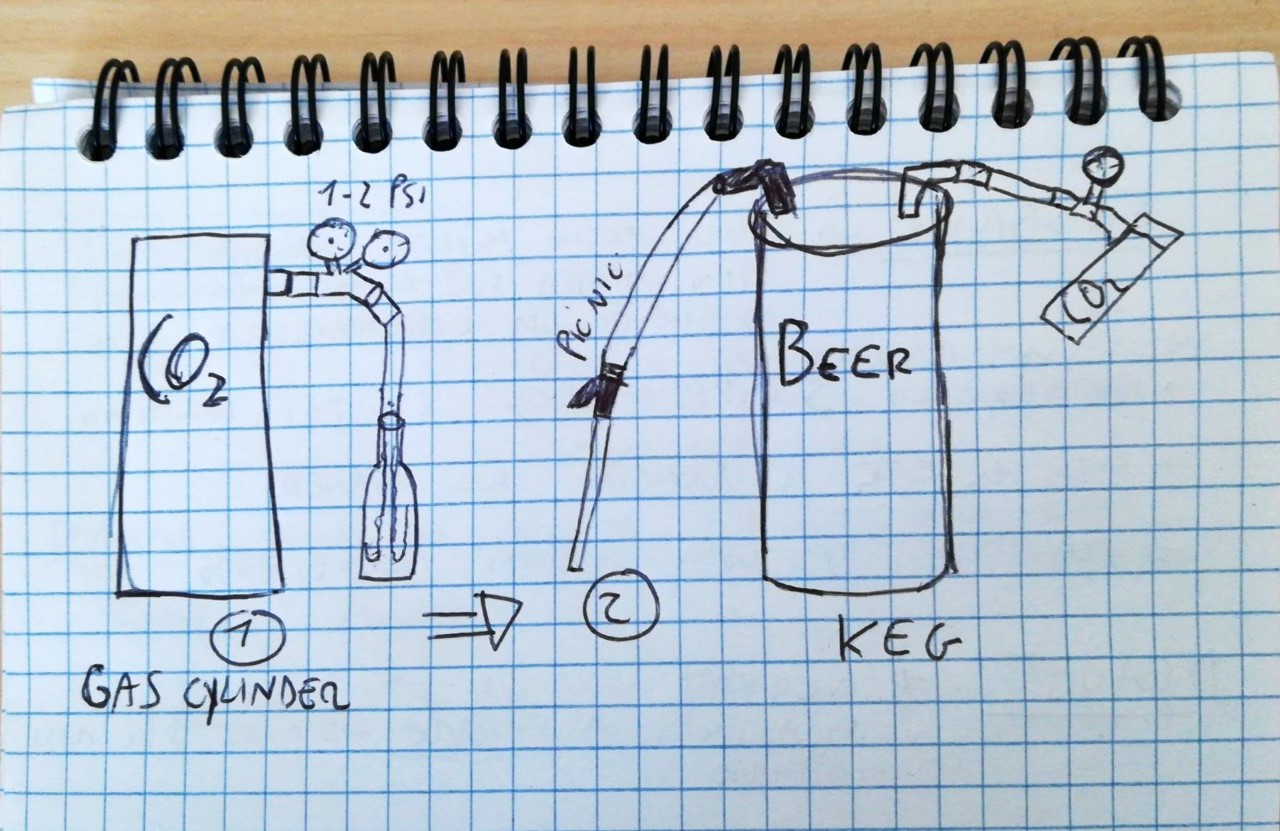 1-2 PSI
CO2
PICNIC
BEER
CO2
1
2
KEG
GAS CYLINDER